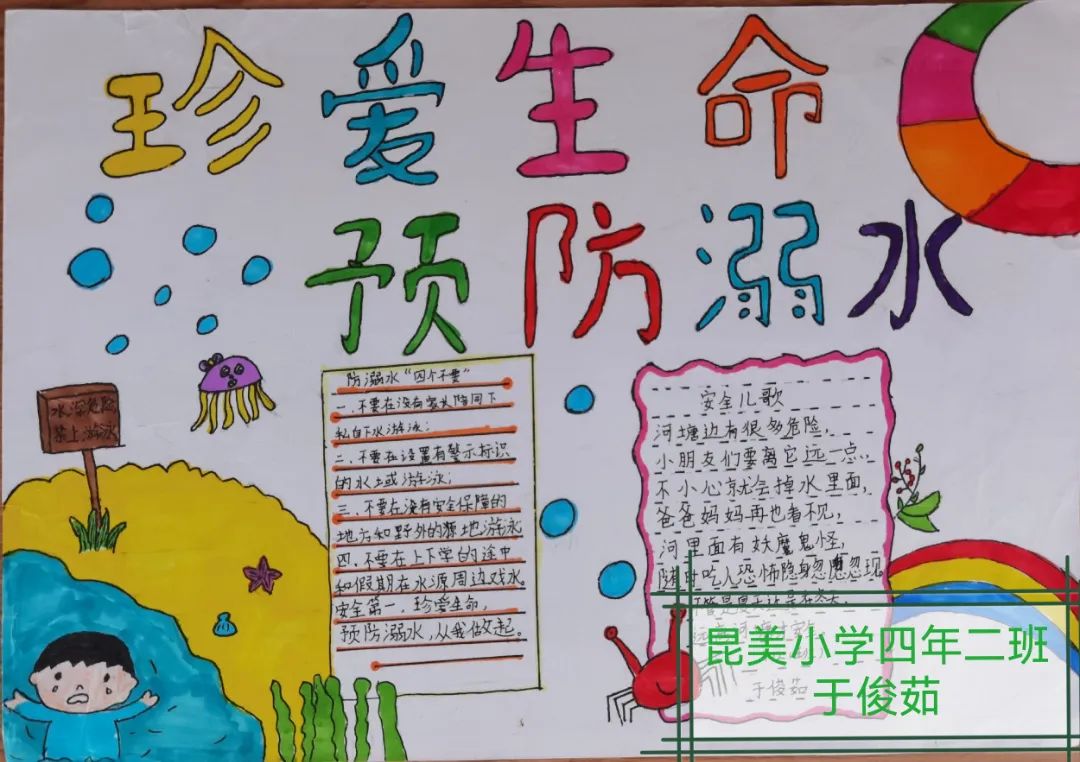 珍爱生命
预防溺水
水深危险
禁止游泳
防溺水“四个不要”
一、不要在没有家长陪同下
私自下水游泳;
二、不要在设置有警示标识
的水土或游泳;
三、不要在没有安全保障的
地方和野外的源地游泳
四、不要在上下学的途中
和假期在水源周边戏水。
安全第一,珍爱生命,
预防溺水,从我做起。
安全儿歌
河塘边有很多危险,
小朋友们要离它远一点,
不小心就会掉水里面,
爸爸妈妈再也看不见,
河里面有妖魔鬼怪,
随时吃人恐怖隐身忽忽现
于俊茹
昆美小学四年二班
于俊茹